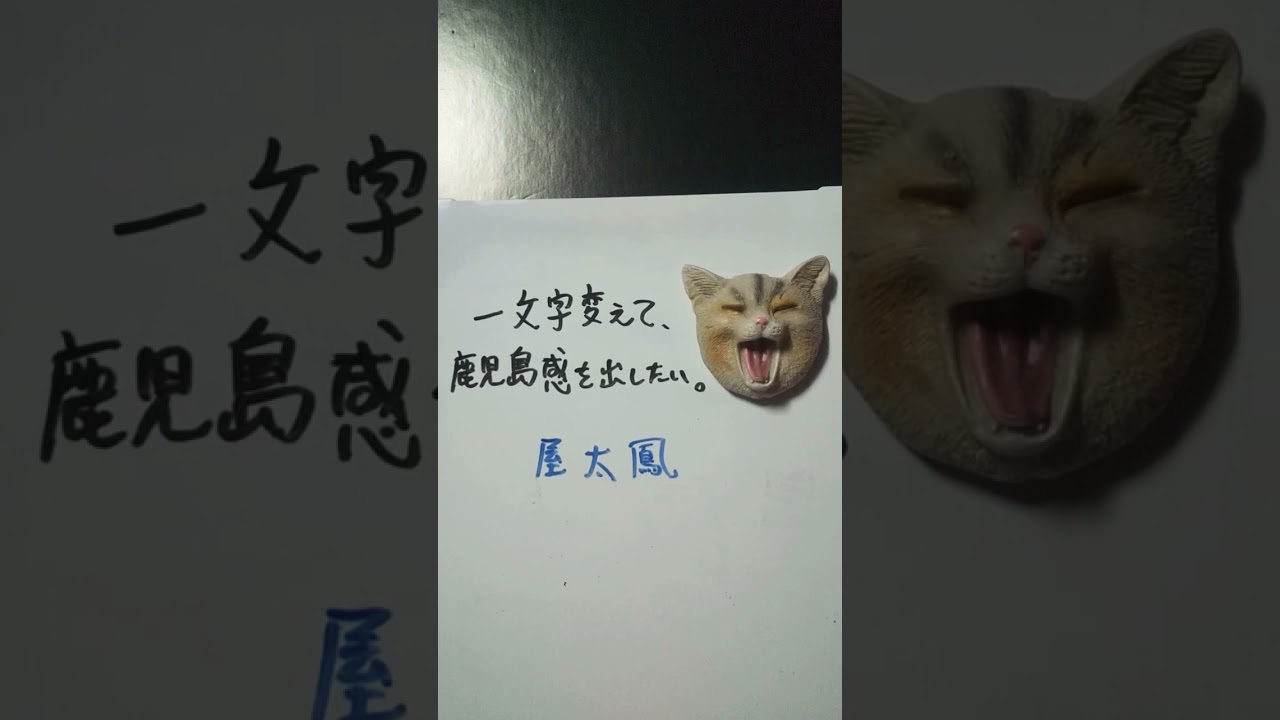 一文字変えて、
鹿児島感を出したい。
屋太鳳